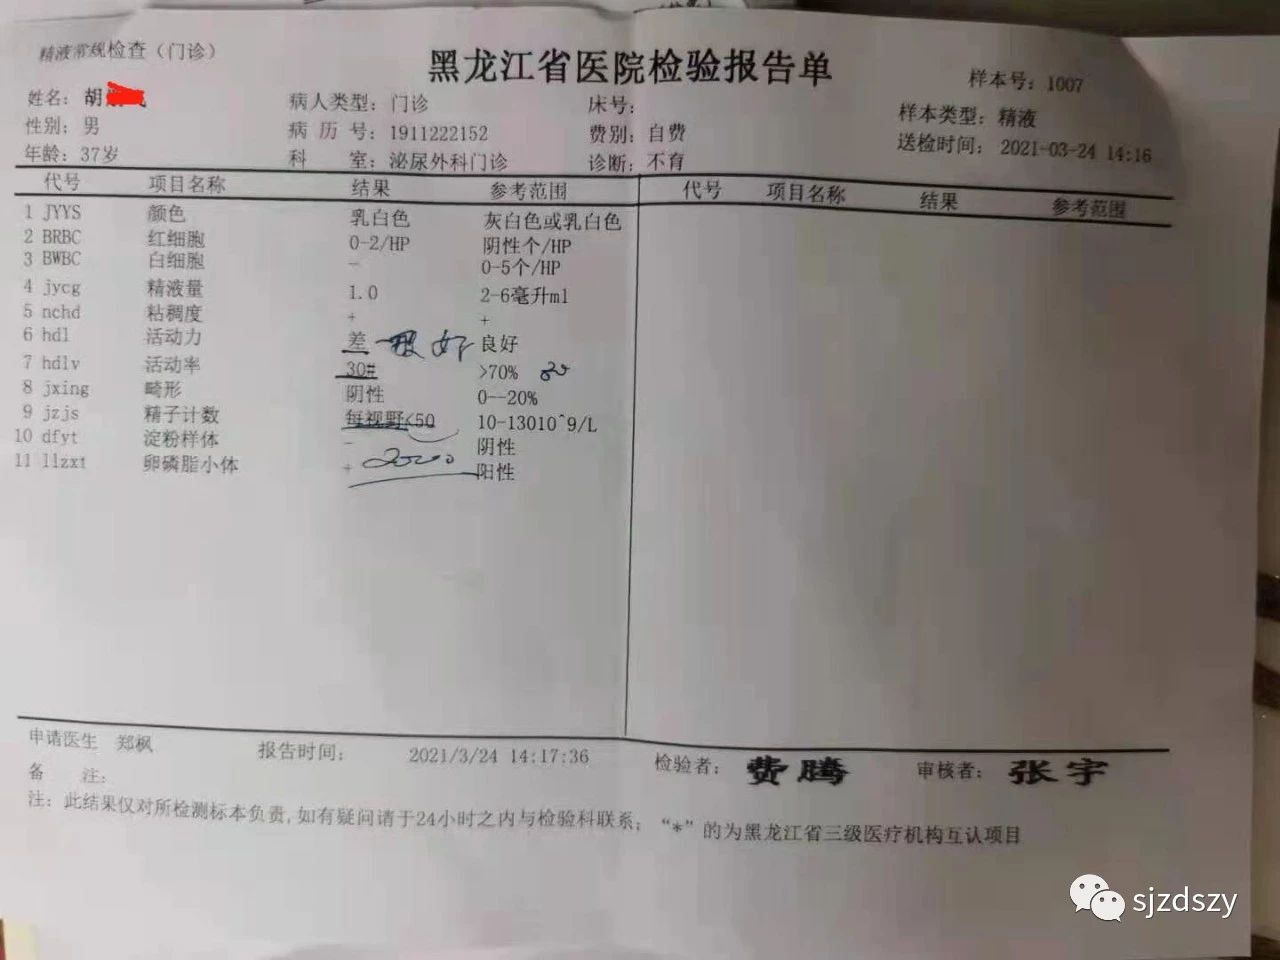 精液常规检查(门诊)
黑龙江省医院检验报告单
样本号: 1007
姓名: 胡 病人类型: 门诊 床号: 样本类型: 精液
性别: 男 病 历 号: 1911222152 费别: 自费 送检时间: 2021-03-24 14:16
年龄: 37岁 科 室: 泌尿外科门诊 诊断: 不育
代号 项目名称 结果 参考范围 代号 项目名称 结果 参考范围
1 JYYS 颜色 乳白色 灰白色或乳白色
2 BRBC 红细胞 0-2/HP 阴性个/HP
3 BWBC 白细胞 - 0-5个/HP
4 jycg 精液量 1.0 2-6毫升ml
5 nchd 粘稠度 + +
6 hdl 活动力 差 一般 好 良好
7 hdlv 活动率 30# >70%
8 jxing 畸形 阴性 0--20%
9 jzjs 精子计数 每视野<50 10-13010^9/L
10 dfyt 淀粉样体 - 阴性
11 llzxt 卵磷脂小体 + 阳性
申请医生 郑枫 报告时间: 2021/3/24 14:17:36 检验者: 费腾 审核者: 张宇
备 注:
注: 此结果仅对所检测标本负责,如有疑问请于24小时之内与检验科联系; “*”的为黑龙江省三级医疗机构互认项目
sjzdszy